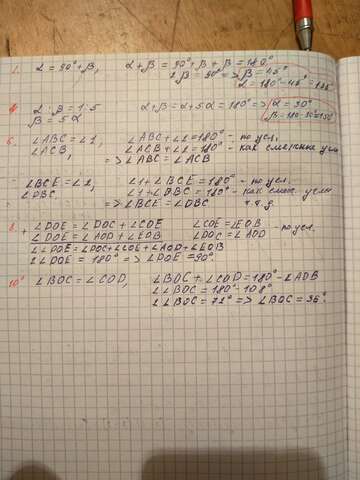 1. α = 90° + β, α + β = 90° + β + β = 180°
2β = 90° => β = 45°
α = 180° - 45° = 135°
4. α : β = 1 : 5 α + β = α + 5α = 180° => α = 30°
β = 5α β = 180° - 30° = 150°
6. ∠ABC = ∠1, ∠ABC + ∠1 = 180° - по усл.
∠ACB, ∠ACB + ∠1 = 180° - как смежные углы
=> ∠ABC = ∠ACB
- ∠BCE = ∠1, ∠1 + ∠BCE = 180° - по усл.
∠DBC ∠1 + ∠DBC = 180° - как смеж. углы
=> ∠BCE = ∠DBC ч.т.д.
8. + ∠DOE = ∠DOC + ∠COE ∠COE = ∠EOB
∠DOE = ∠AOD + ∠EOB ∠DOC = ∠AOD - по усл.
2∠DOE = ∠DOC + ∠COE + ∠AOD + ∠EOB
2∠DOE = 180° => ∠DOE = 90°
10° ∠BOC = ∠COD, ∠BOC + ∠COD = 180° - ∠AOB
2∠BOC = 180° - 108°
2∠BOC = 72° => ∠BOC = 36°